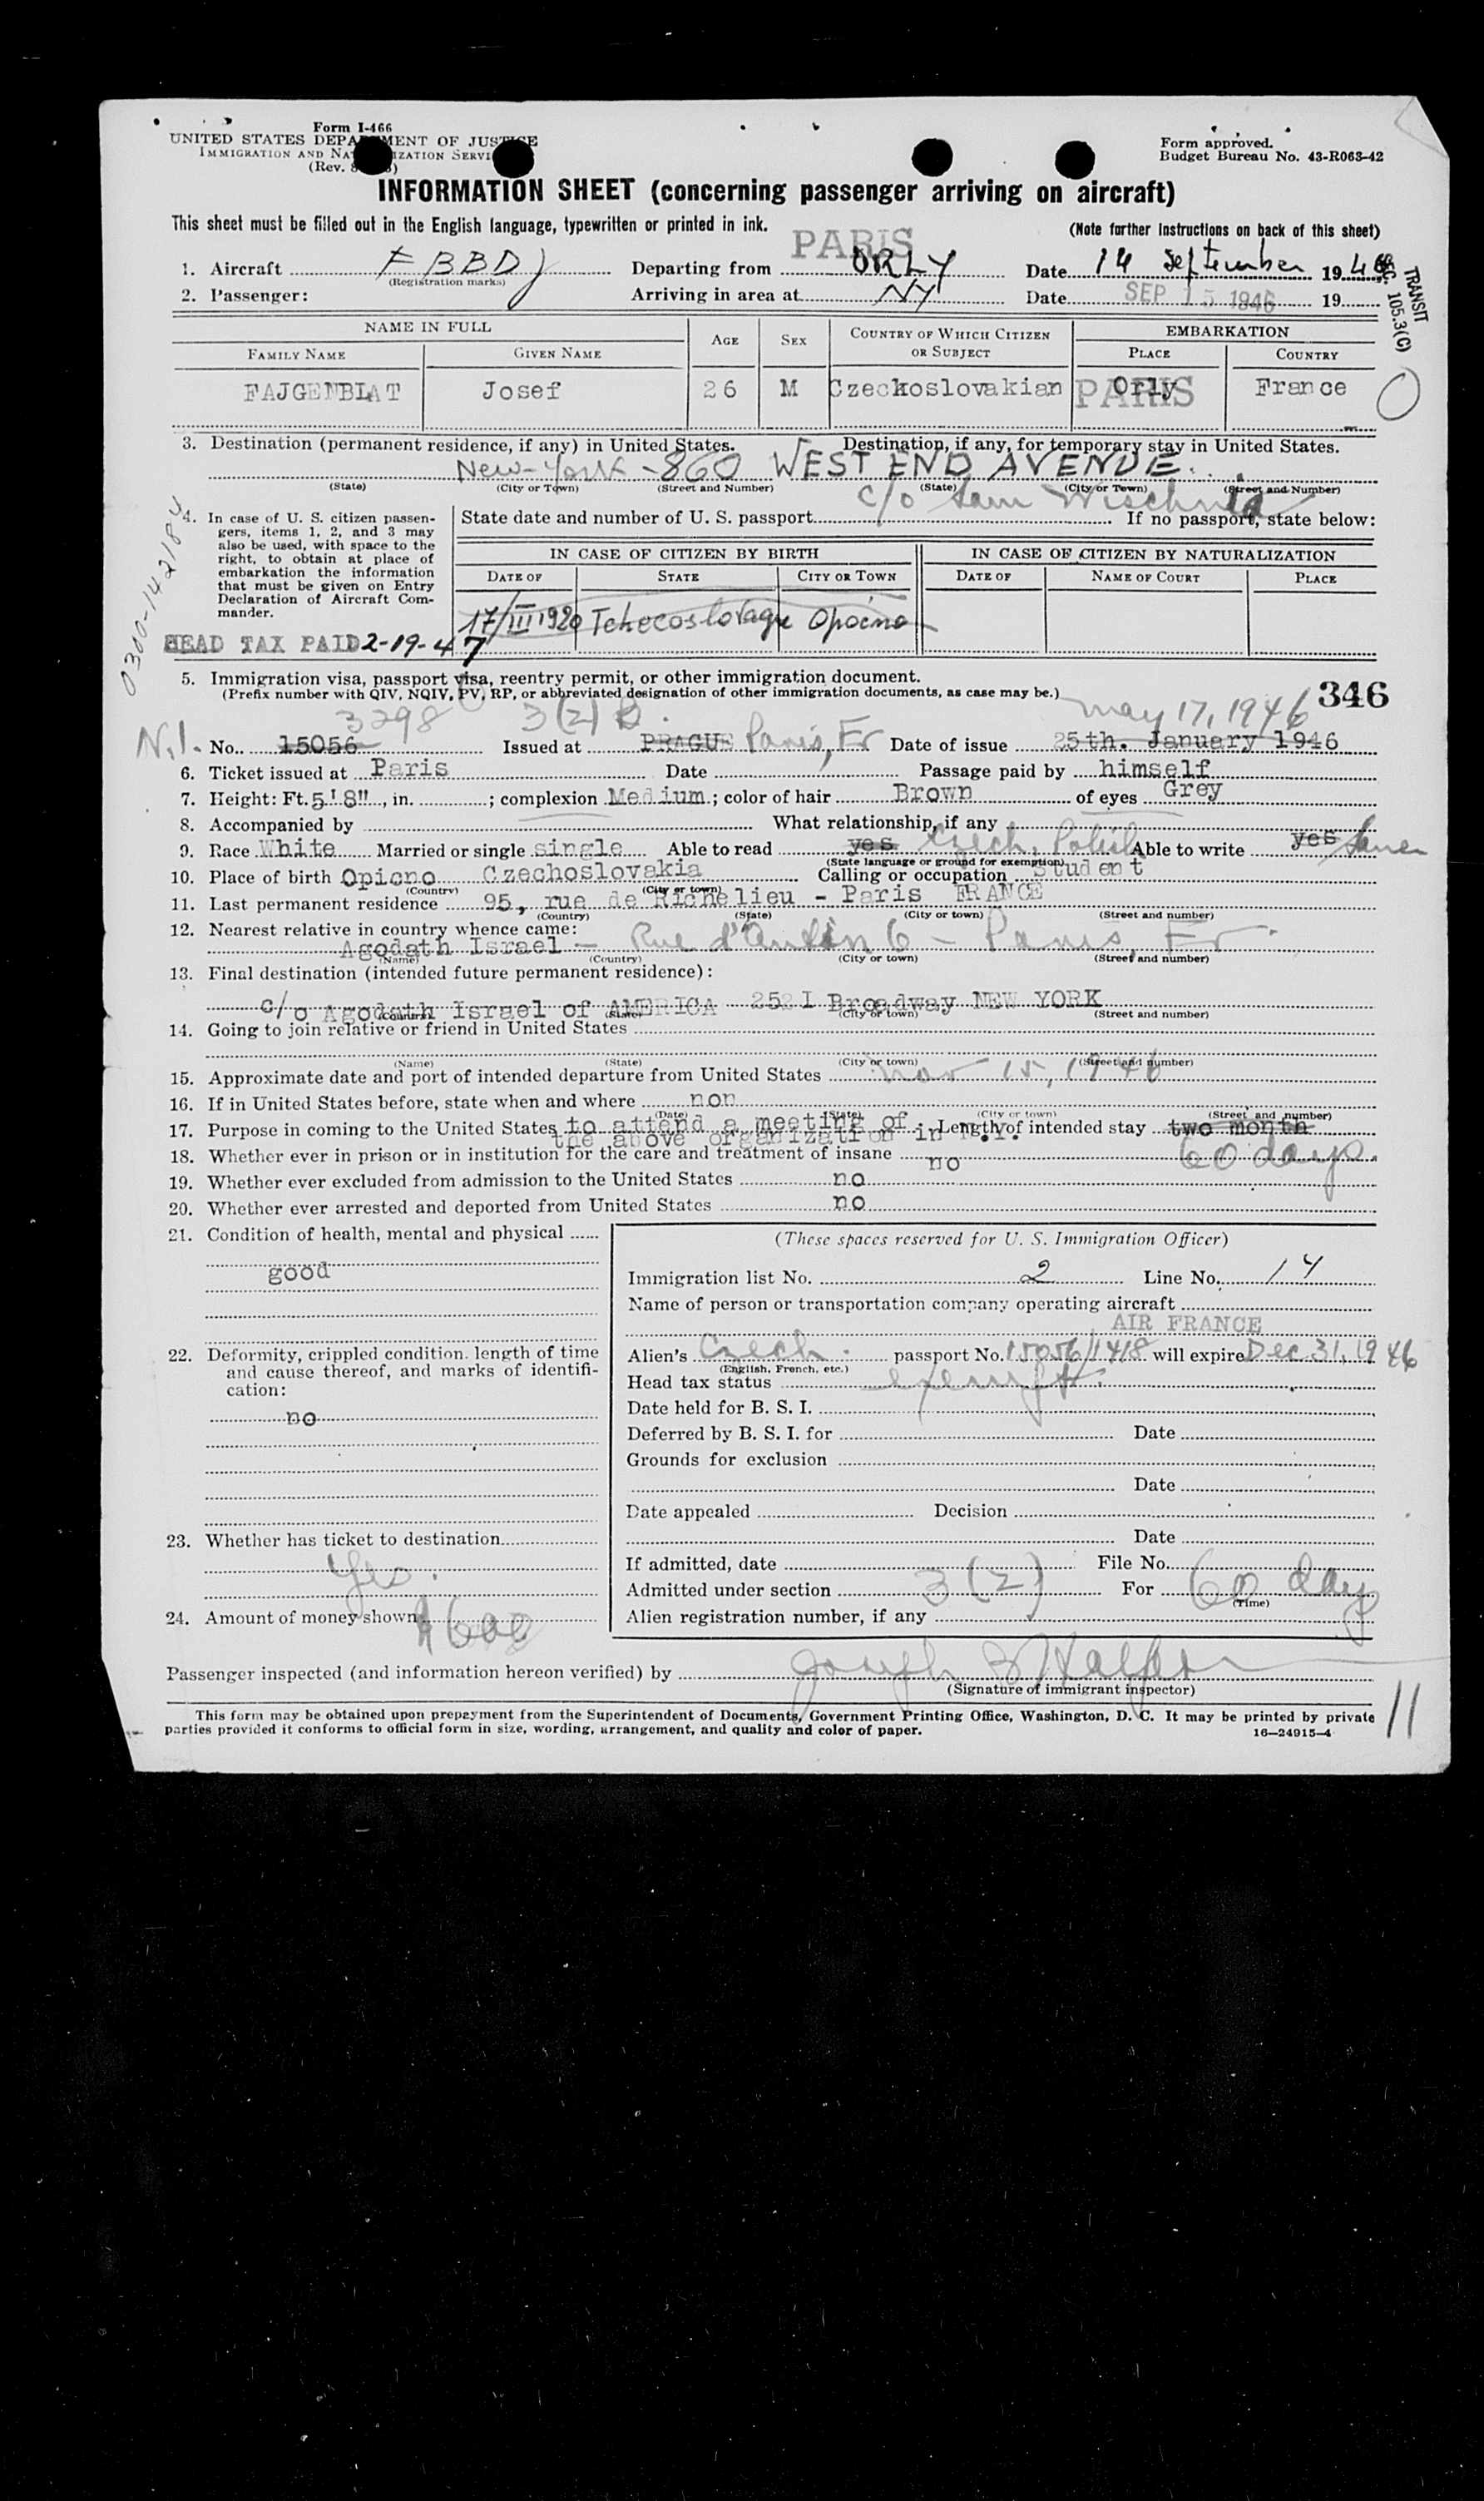 Form I-466
UNITED STATES DEPARTMENT OF JUSTICE
IMMIGRATION AND NATURALIZATION SERVICE
(Rev.
Form approved.
Budget Bureau No. 43-R063-42
INFORMATION SHEET (concerning passenger arriving on aircraft)
This sheet must be filled out in the English language, typewritten or printed in ink.
(Note further instructions on back of this sheet)
PARIS
1. Aircraft F BBDJ Departing from ORLY Date 14 September 1946
(Registration marks)
2. Passenger: Arriving in area at NY Date SEP 15 1946 19
TRANSIT
SEC. 105.3(C)
NAME IN FULL AGE SEX COUNTRY OF WHICH CITIZEN OR SUBJECT EMBARKATION
FAMILY NAME GIVEN NAME PLACE COUNTRY
FAJGENBLAT Josef 26 M Czeckoslovakian Orly PARIS France
3. Destination (permanent residence, if any) in United States. Destination, if any, for temporary stay in United States.
New-York - 860 WEST END AVENUE.
(State) (City or Town) (Street and Number) (State) (City or Town) (Street and Number)
c/o Sam Wischnia
4. In case of U. S. citizen passengers, items 1, 2, and 3 may also be used, with space to the right, to obtain at place of embarkation the information that must be given on Entry Declaration of Aircraft Commander.
State date and number of U. S. passport If no passport, state below:
IN CASE OF CITIZEN BY BIRTH IN CASE OF CITIZEN BY NATURALIZATION
DATE OF STATE CITY OR TOWN DATE OF NAME OF COURT PLACE
17/III 1920 Tchecoslovaque Opocno
0300-142184
HEAD TAX PAID 2-19-47
5. Immigration visa, passport visa, reentry permit, or other immigration document.
(Prefix number with QIV, NQIV, PV, RP, or abbreviated designation of other immigration documents, as case may be.)
346
3298 3(2) May 17, 1946
No. 15056 Issued at PRAGUE Paris, Fr Date of issue 25th. January 1946
6. Ticket issued at Paris Date Passage paid by himself
7. Height: Ft. 5'8", in. ; complexion Medium ; color of hair Brown of eyes Grey
8. Accompanied by What relationship, if any
9. Race White Married or single single Able to read yes Czech, Polish Able to write yes
(State language or ground for exemption)
10. Place of birth Opicno Czechoslovakia Calling or occupation Student
(Country) (City or town)
11. Last permanent residence 95, rue de Richelieu - Paris FRANCE
(Country) (State) (City or town) (Street and number)
12. Nearest relative in country whence came:
Agodath Israel - Rue d'Antin 6 - Paris, Fr.
(Name) (Country) (City or town) (Street and number)
13. Final destination (intended future permanent residence):
c/o Agodath Israel of AMERICA 2521 Broadway NEW YORK
(Country) (State) (City or town) (Street and number)
14. Going to join relative or friend in United States
(Name) (State) (City or town) (Street and number)
15. Approximate date and port of intended departure from United States Nov 15, 1946
16. If in United States before, state when and where non
(Date) (State) (City or town) (Street and number)
17. Purpose in coming to the United States to attend a meeting of the above organization in N.Y. Length of intended stay two month
60 days
18. Whether ever in prison or in institution for the care and treatment of insane no
19. Whether ever excluded from admission to the United States no
20. Whether ever arrested and deported from United States no
21. Condition of health, mental and physical
good
22. Deformity, crippled condition, length of time and cause thereof, and marks of identification:
no
23. Whether has ticket to destination
Yes.
24. Amount of money shown
(These spaces reserved for U. S. Immigration Officer)
Immigration list No. 2 Line No. 14
Name of person or transportation company operating aircraft
AIR FRANCE
Alien's Czech. passport No. 15056/1418 will expire Dec 31, 1946
(English, French, etc.)
Head tax status exempt.
Date held for B. S. I.
Deferred by B. S. I. for Date
Grounds for exclusion
Date
Date appealed Decision
Date
If admitted, date File No.
Admitted under section 3(2) For 60 days
(Time)
Alien registration number, if any
Passenger inspected (and information hereon verified) by
(Signature of immigrant inspector)
This form may be obtained upon prepayment from the Superintendent of Documents, Government Printing Office, Washington, D. C. It may be printed by private
parties provided it conforms to official form in size, wording, arrangement, and quality and color of paper.
16—24915-4
11